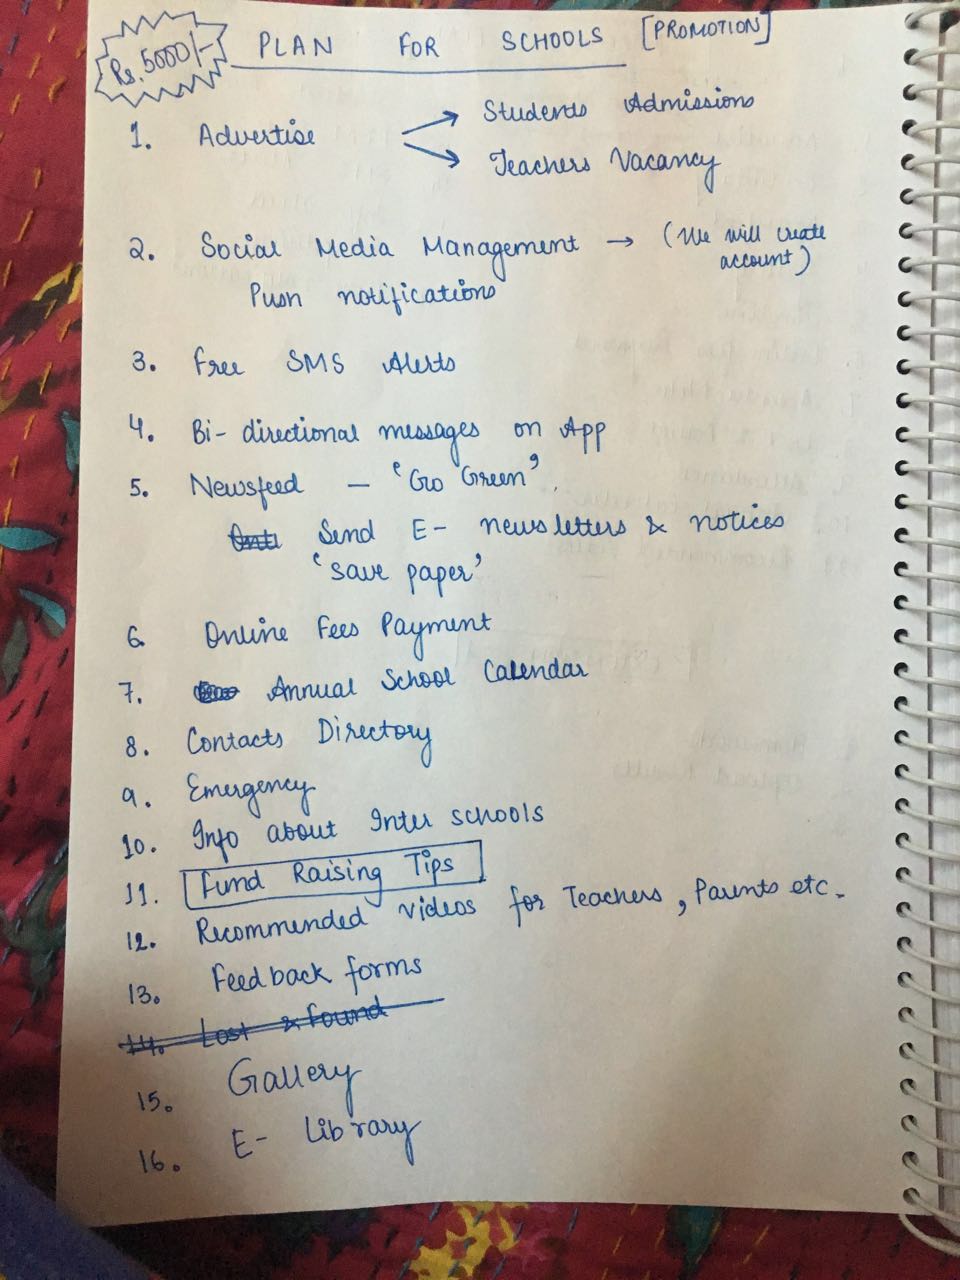 Rs. 5000/-
PLAN FOR SCHOOLS [PROMOTION]
1. Advertise → Students Admissions
→ Teachers Vacancy
2. Social Media Management → (We will create
account)
Push notifications
3. Free SMS Alerts
4. Bi-directional messages on App
5. Newsfeed - 'Go Green'.
Send E- newsletters & notices
'save paper'
6. Online Fees Payment
7. Annual School Calendar
8. Contacts Directory
9. Emergency
10. Info about Inter schools
11. Fund Raising Tips
12. Recommended videos for Teachers, Parents etc.
13. Feedback forms
14. Lost & found
15. Gallery
16. E- Library